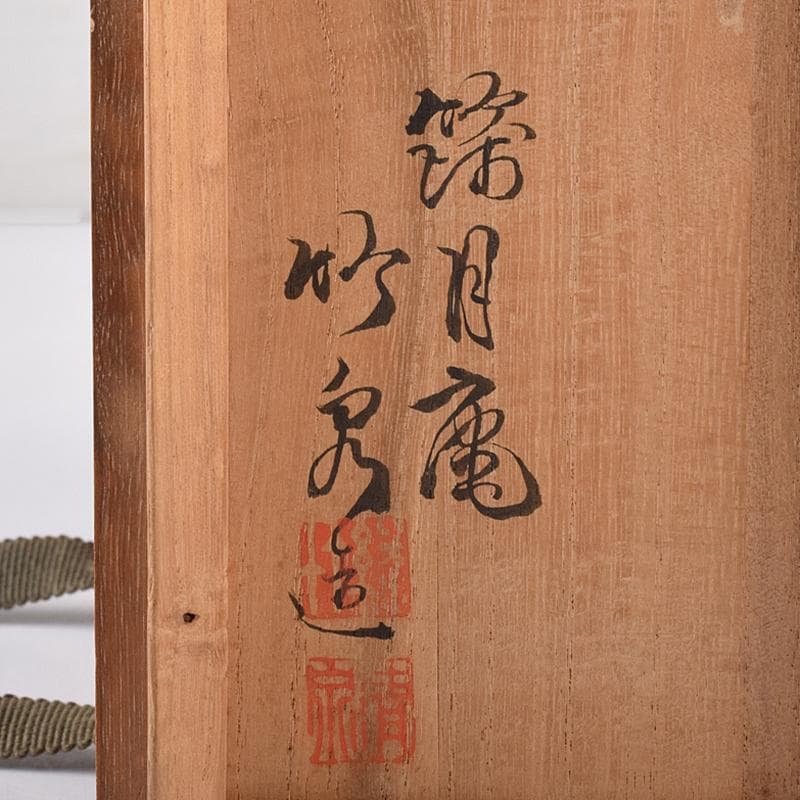 篩月庵
竹泉造